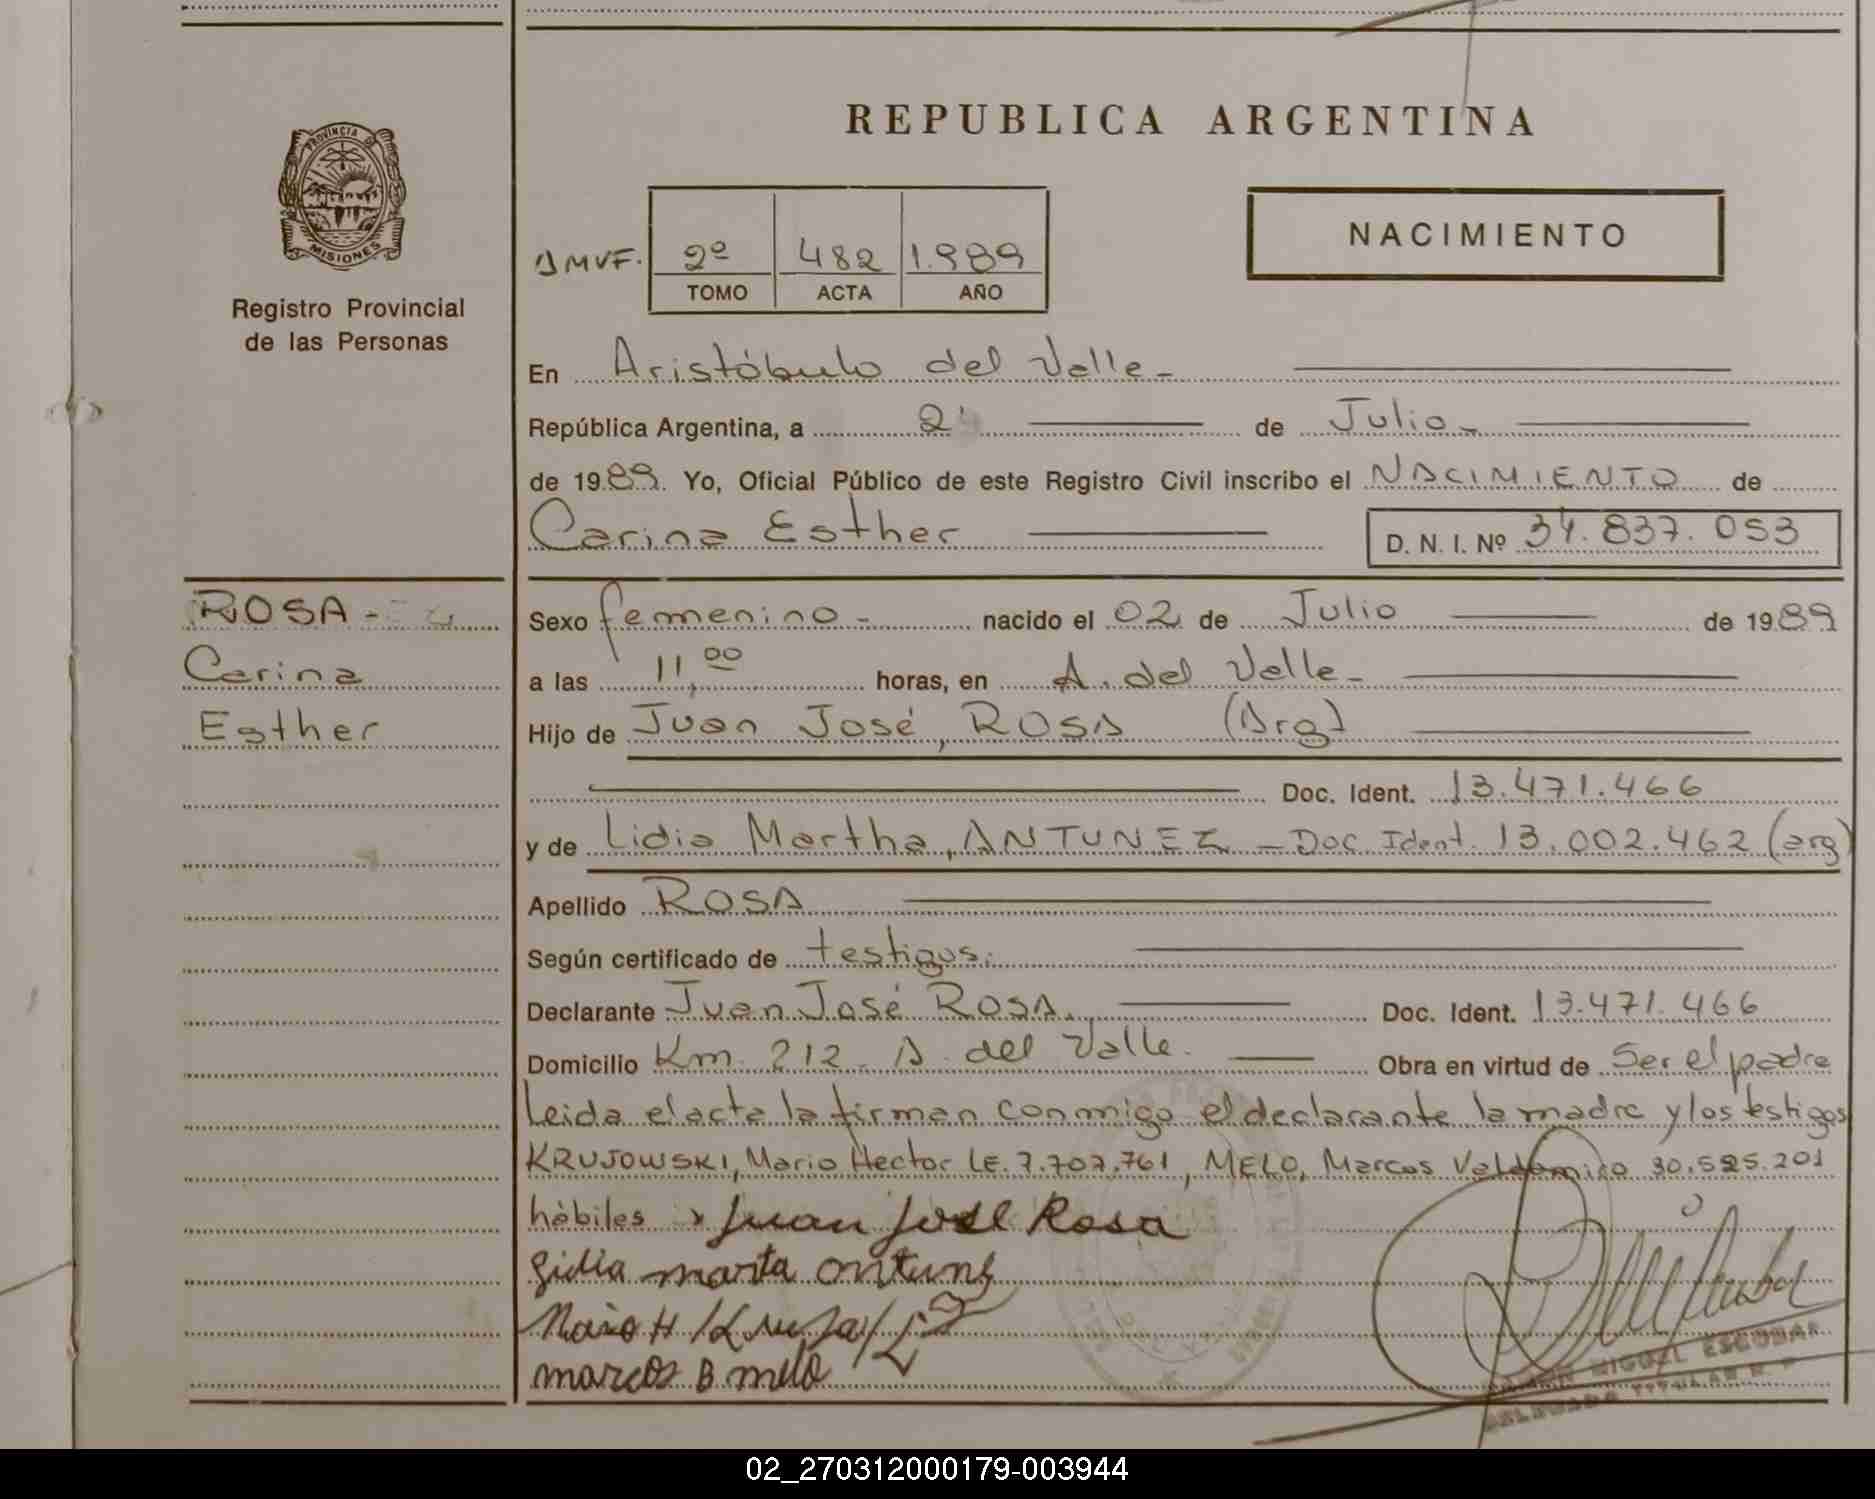 PROVINCIA DE
MISIONES
Registro Provincial
de las Personas
REPUBLICA ARGENTINA
NACIMIENTO
2º 482 1.989
TOMO ACTA AÑO
En Aristóbulo del Valle-
República Argentina, a 2 de Julio-
de 1989. Yo, Oficial Público de este Registro Civil inscribo el NACIMIENTO de
Carina Esther D. N. I. Nº 34.837.053
ROSA-
Carina
Esther
Sexo femenino- nacido el 02 de Julio de 1989
a las 11,00 horas, en A. del Valle-
Hijo de Juan José, ROSA (Arg)
Doc. Ident. 13.471.466
y de Lidia Martha, ANTUNEZ - Doc. Ident. 13.002.462 (arg)
Apellido ROSA
Según certificado de testigos.
Declarante Juan José ROSA. Doc. Ident. 13.471.466
Domicilio Km. 212 - A. del Valle. Obra en virtud de Ser el padre
Leida el acta la firman conmigo el declarante la madre y los testigos
KRUJOWSKI, Mario Hector LE. 7.707.761, MELO, Marcos Valdomiro 30.525.201
hábiles Juan José Rosa
Lidia marta antunez
Mario H
marcos B melo
MIGUEL ESCOBAR
02_270312000179-003944